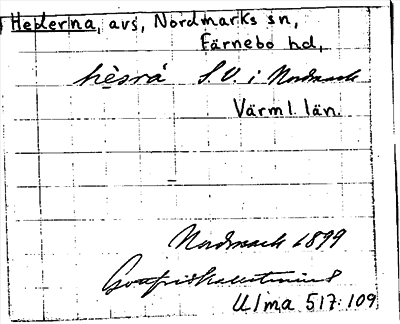 Hederna, avs, Nordmarks sn,
Färnebo hd,
hèsrå S.V. i Nordmark
Värml. län.
Nordmark 1899
Gottfrid Kallstenius
Ulma 517:109